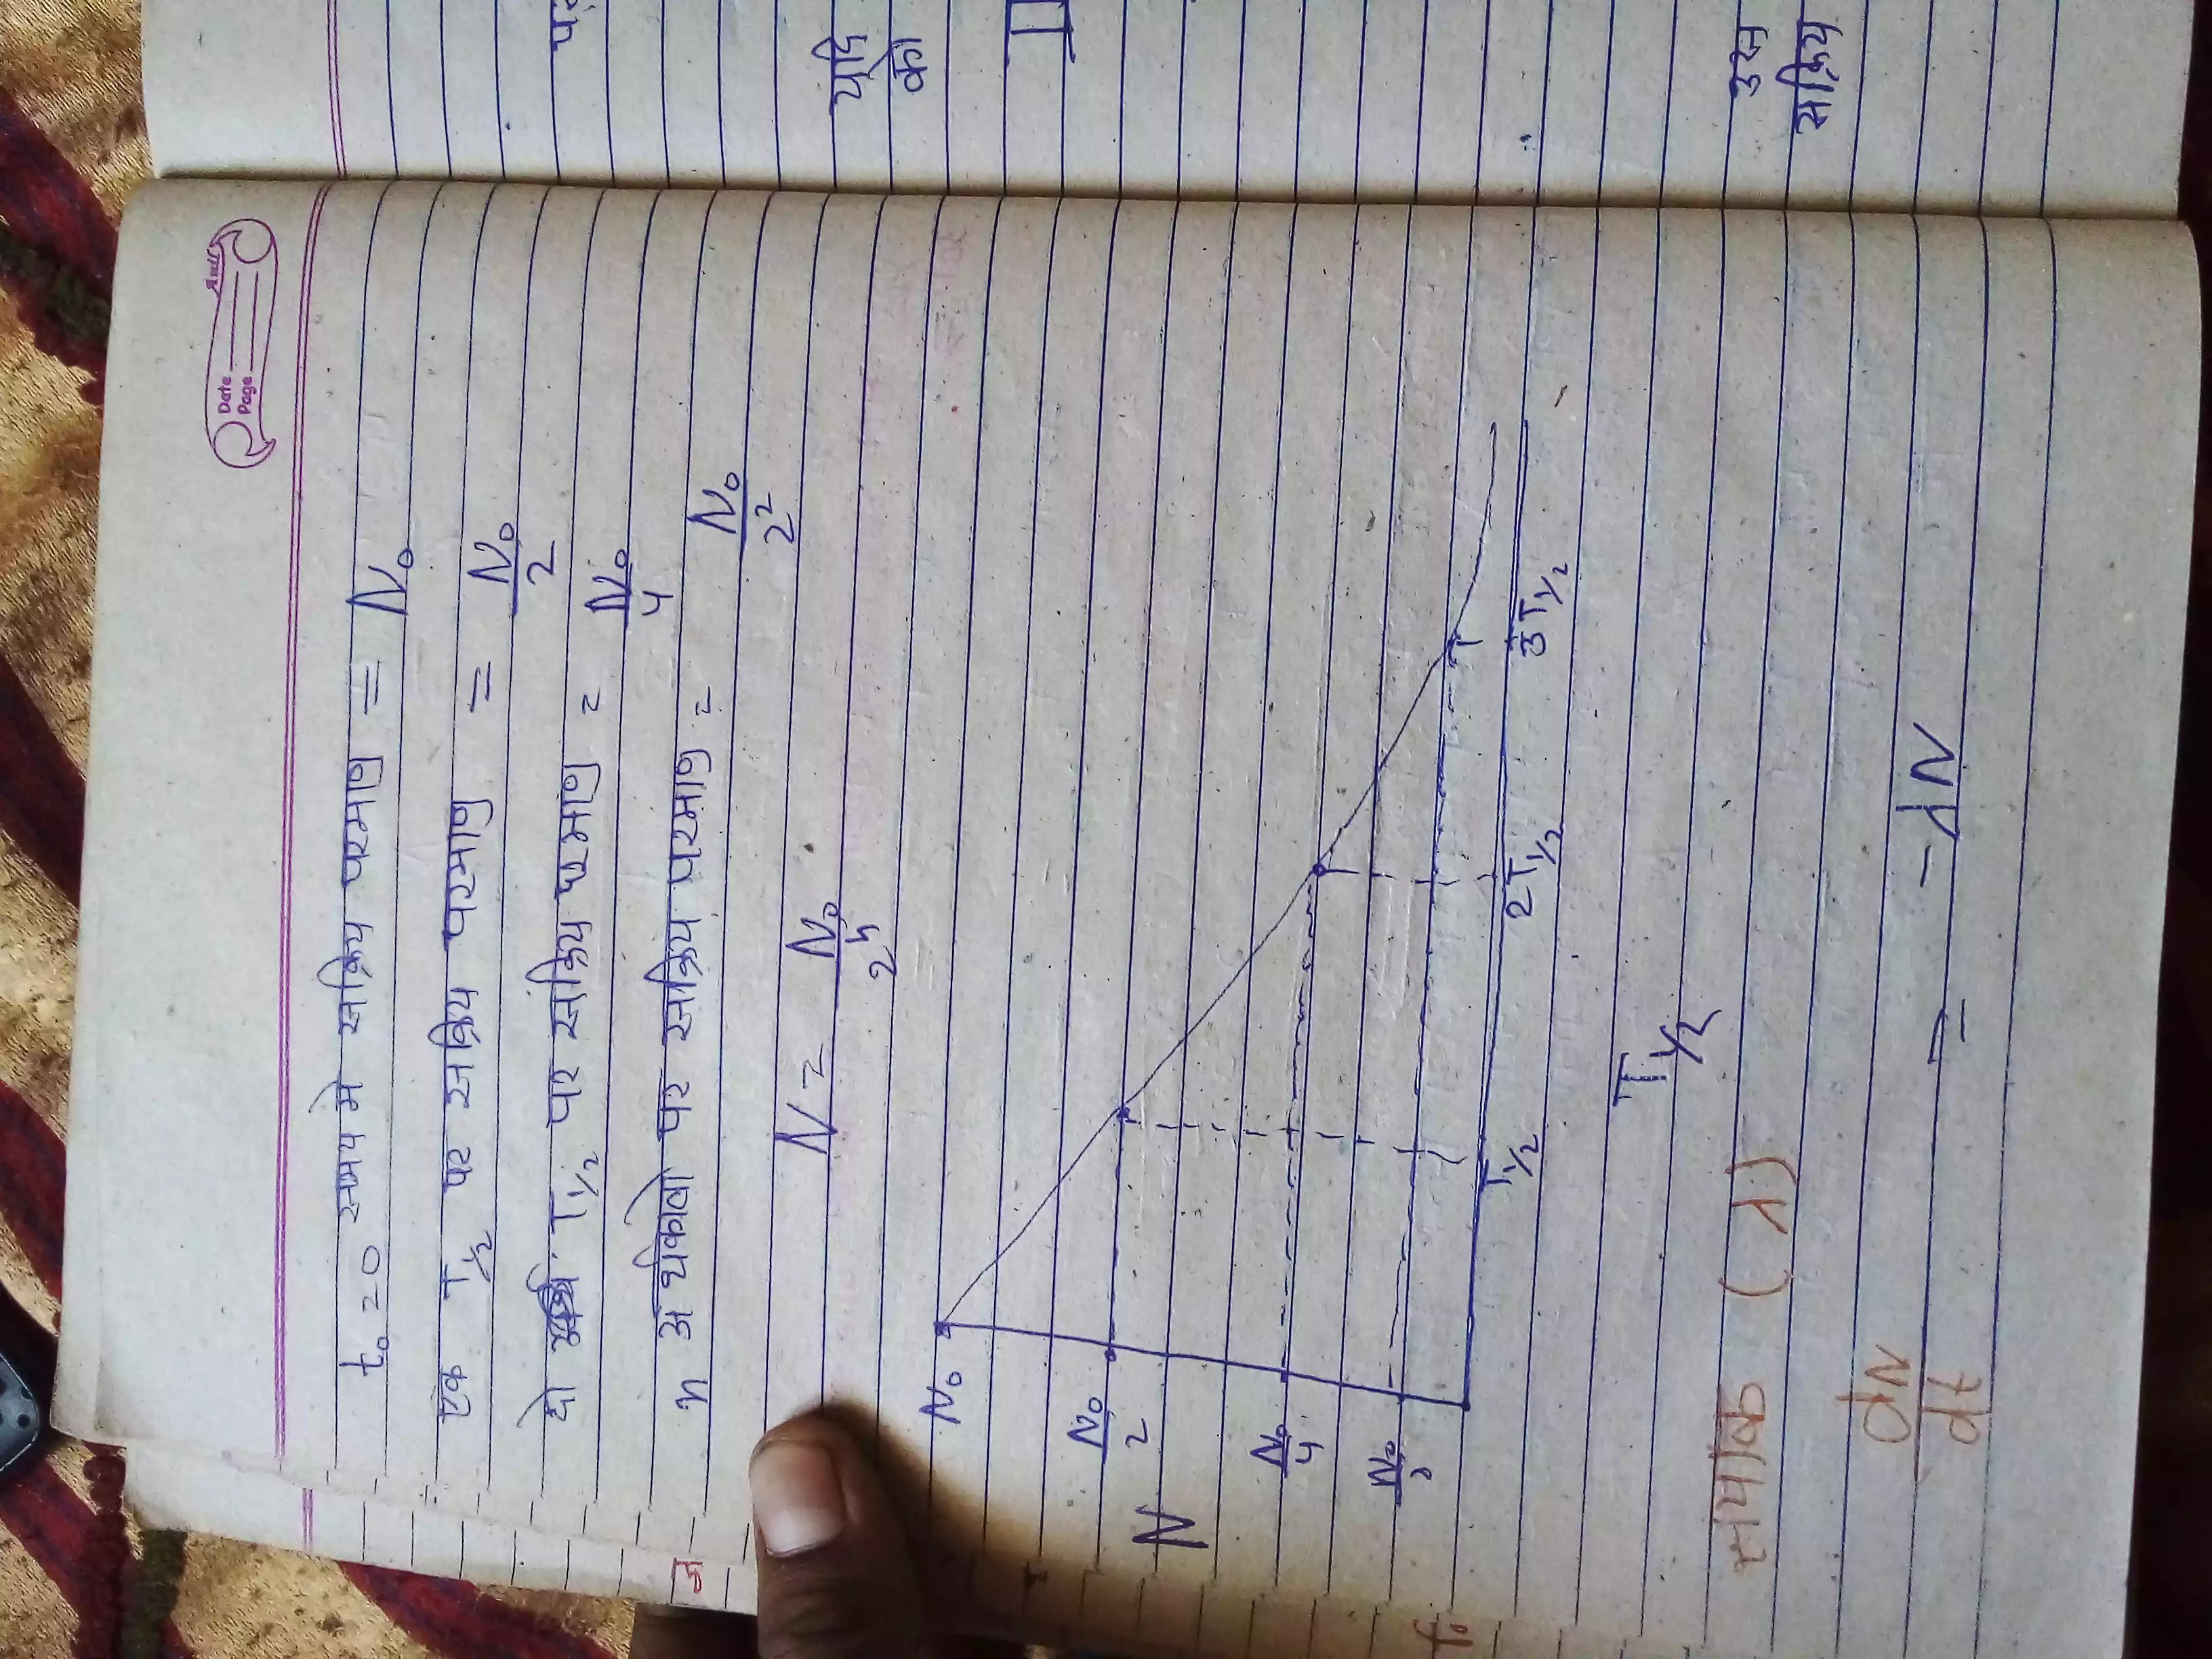 Date
Page
t₀ = 0 समय मे सक्रिय परमाणु = N₀
एक T1/2 पर सक्रिय परमाणु = N₀/2
दो T1/2 पर सक्रिय परमाणु = N₀/4
n अर्धकालो पर सक्रिय परमाणु = N₀/2²
N = N₀/2ⁿ
N₀
N₀/2
N
N₀/4
T1/2 2T1/2 3T1/2
T1/2
(λ)
dN/dt = -λN
यदि
का
उस
सक्रिय